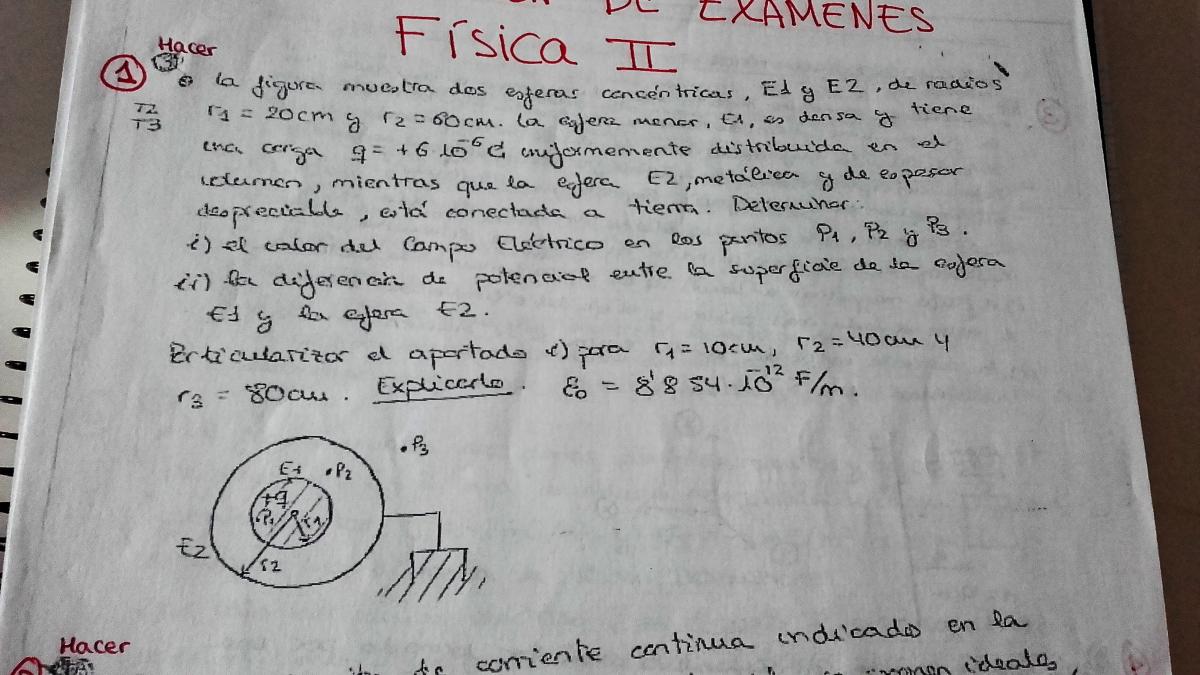 DE EXÁMENES
Física II
Hacer
1 La figura muestra dos esferas concéntricas, E1 y E2, de radios
T2
T3
r1 = 20cm y r2 = 60cm. La esfera menor, E1, es densa y tiene
una carga q = +6·10⁻⁶ C uniformemente distribuida en el
volumen, mientras que la esfera E2, metálica y de espesor
despreciable, está conectada a tierra. Determinar:
i) el valor del Campo Eléctrico en los puntos P1, P2 y P3.
ii) la diferencia de potencial entre la superficie de la esfera
E1 y la esfera E2.
Particularizar el apartado i) para r1 = 10cm, r2 = 40cm y
r3 = 80cm. Explicarlo. ε0 = 8'854·10⁻¹² F/m.
.P3
E1 .P2
+q
.P1 r1
E2
r2
Hacer
de corriente continua indicado en la
ideales,